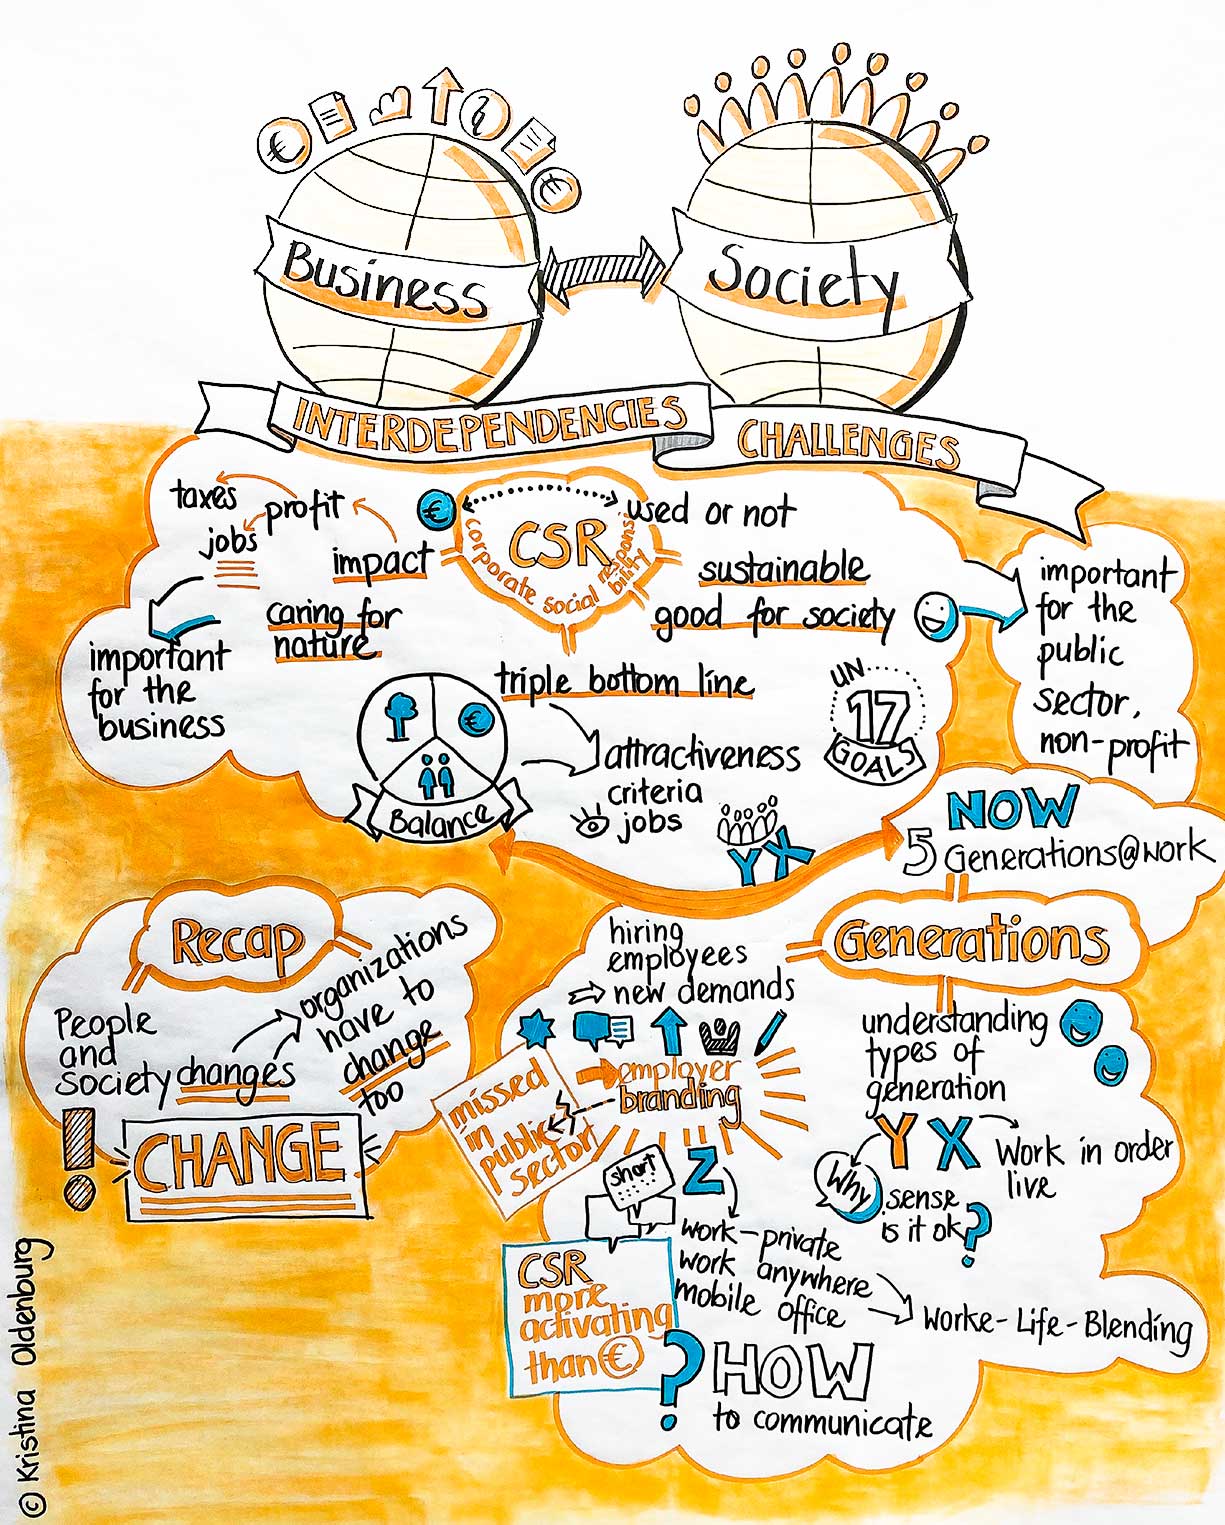 Business
Society
INTERDEPENDENCIES
CHALLENGES
taxes
profit
jobs
impact
caring for
nature
important
for the
business
€
CSR
corporate social responsi
bility
used or not
sustainable
good for society
important
for the
public
sector,
non-profit
triple bottom line
€
Balance
attractiveness
criteria
jobs
UN
17
GOALS
Y X
NOW
5 Generations@work
Generations
understanding
types of
generation
Y X
Work in order
live
Why
sense
is it ok?
Recap
People
and
society changes
organizations
have to
change
too
CHANGE
!
hiring
employees
new demands
employer
branding
missed
in
public
sector
short
Z
work-private
work anywhere
mobile office
Worke-Life-Blending
CSR
more
activating
than €
? HOW
to communicate
© Kristina Oldenburg